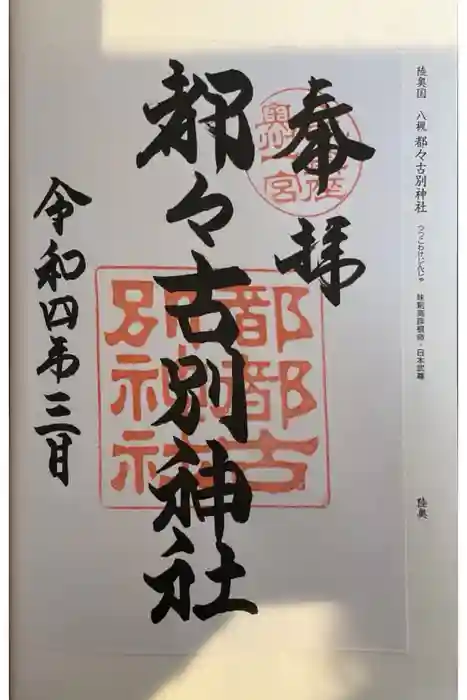 陸奥国 八槻 都々古別神社 つつこわけじんじゃ 味耜高彦根命・日本武尊
陸奥
奉拝
奥州一宮
都々古別神社
都都古
別神社
令和四年三日